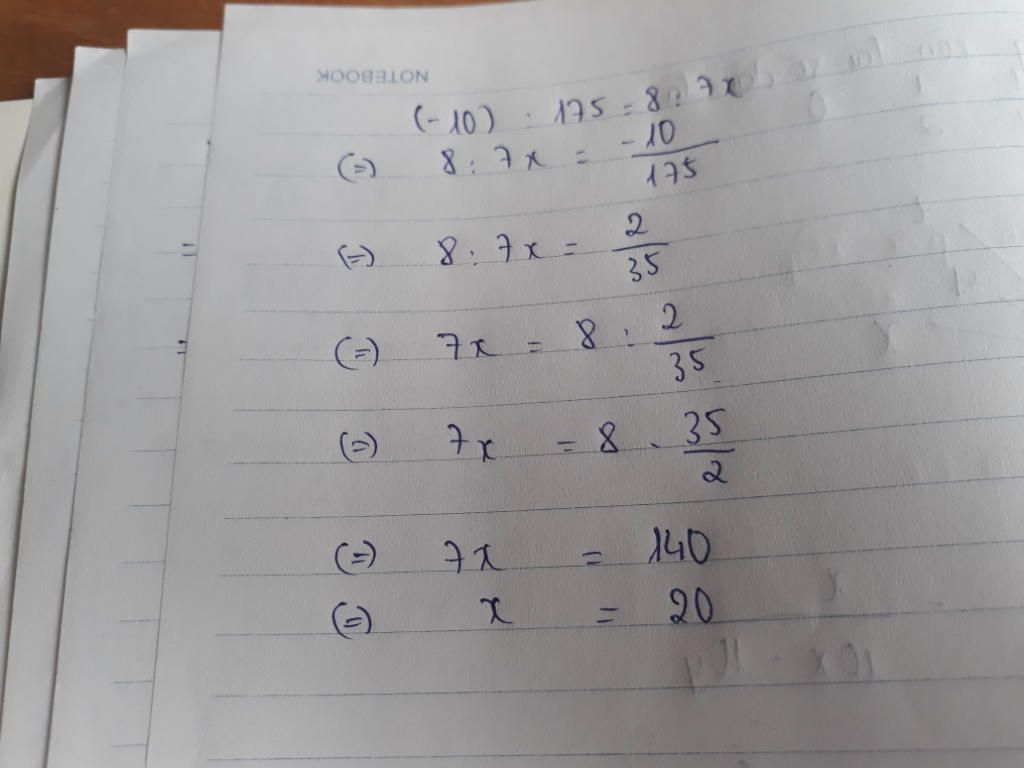 NOTEBOOK
(-10) : 175 = 8 : 7x
(=) 8 : 7x = -10/175
(=) 8 : 7x = 2/35
(=) 7x = 8 : 2/35
(=) 7x = 8 . 35/2
(=) 7x = 140
(=) x = 20